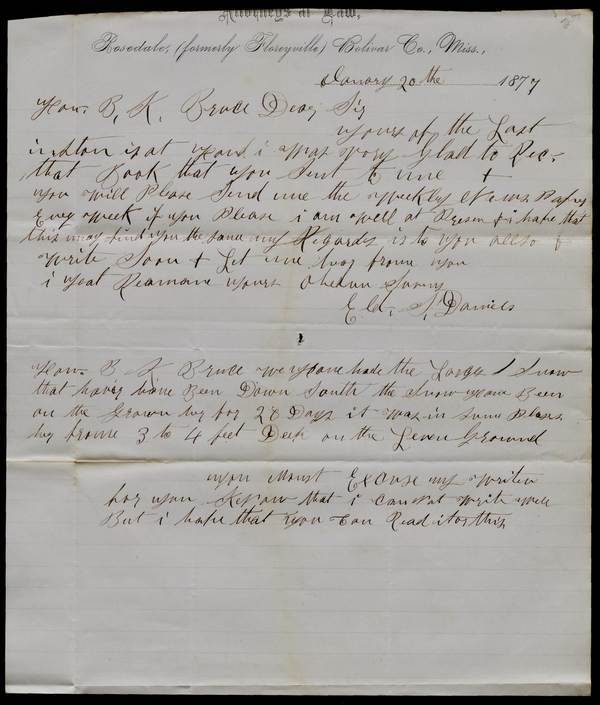 Attorneys at Law,
Rosedale, (formerly Floreyville) Bolivar Co., Miss.,
Janury 20 the 1877
Hon. B. K. Bruce Dear Sir
yours of the Last
is at hand i was very glad to Rec.
that Book that you sent to me +
you will Please send me the weekly News Paper
Evry week if you Please i am well at Presen + i hape that
this may find you the same my Regards is to you allso +
write soon + Let me hear frome you
i Remane yours
Daniels
Hon. B K Bruce we have hade the Larges Snow
that has Been Down South the Snow have Been
on the Ground for 28 Days it was in sum Plases
frome 3 to 4 feet Deep on the Leven Ground
you Moust Excuse my writen
for you Know that i can not write well
But i hape that you can Read it this